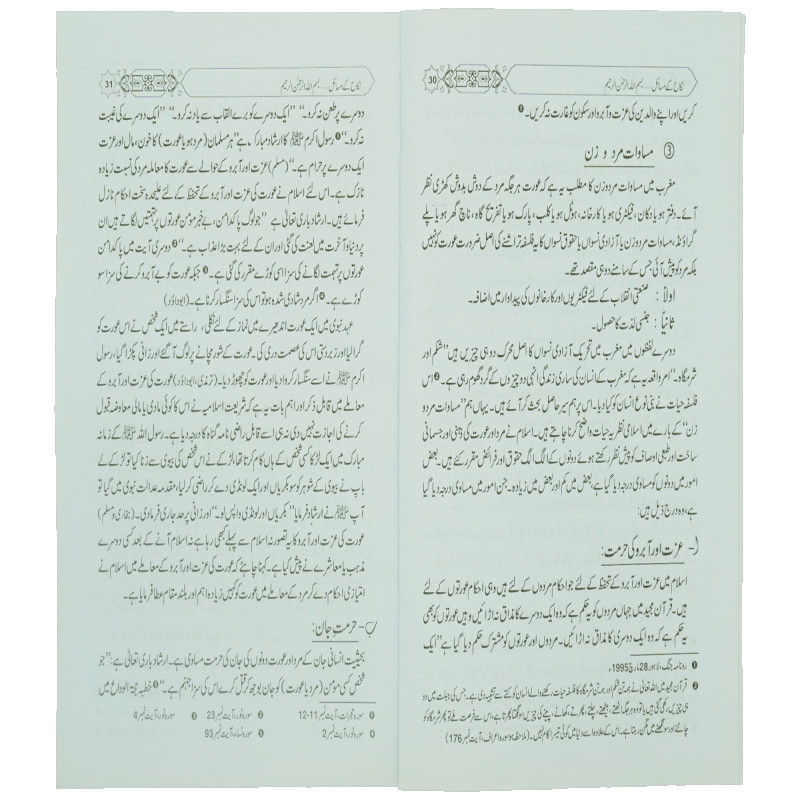 نکاح کے مسائل .... بسم اللہ الرحمٰن الرحیم
30
کریں اور اپنے والدین کی عزت و آبرو اور سکون کو غارت نہ کریں۔❶
③ مساوات مرد و زن
مغرب میں مساوات مرد و زن کا مطلب یہ ہے کہ عورت ہر جگہ مرد کے دوش بدوش کھڑی نظر
آئے۔ دفتر ہو یا دکان، فیکٹری ہو یا کارخانہ، ہوٹل ہو یا کلب، پارک ہو یا تفریح گاہ، ناچ گھر ہو یا پلے
گراؤنڈ، مساوات مرد و زن یا آزادی نسواں یا حقوق نسواں کا یہ فلسفہ تراشنے کی اصل ضرورت عورت کو نہیں
بلکہ مرد کو پیش آئی جس کے سامنے دو ہی مقصد تھے۔
اولاً : صنعتی انقلاب کے لئے فیکٹریوں اور کارخانوں کی پیداوار میں اضافہ۔
ثانیاً : جنسی لذت کا حصول۔
دوسرے لفظوں میں مغرب میں تحریک آزادی نسواں کا اصل محرک دو ہی چیزیں ہیں ’’شکم اور
شرمگاہ۔‘‘ امر واقعہ یہ ہے کہ مغرب کے انسان کی ساری زندگی انہی دو چیزوں کے گرد گھوم رہی ہے۔❷ اس
فلسفہ حیات نے بنی نوع انسان کو کیا دیا۔ اس پر ہم سیر حاصل بحث کر آئے ہیں۔ یہاں ہم ’’مساوات مرد و
زن‘‘ کے بارے میں اسلامی نظریہ حیات واضح کرنا چاہتے ہیں۔ اسلام نے مرد اور عورت کی ذہنی اور جسمانی
ساخت اور طبعی اوصاف کو پیش نظر رکھتے ہوئے دونوں کے الگ الگ حقوق اور فرائض مقرر کئے ہیں۔ بعض
امور میں دونوں کو مساوی درجہ دیا گیا ہے، بعض میں کم اور بعض میں زیادہ۔ جن امور میں مساوی درجہ دیا گیا
ہے، وہ درج ذیل ہیں:
ا۔ عزت اور آبرو کی حرمت:
اسلام میں عزت اور آبرو کے تحفظ کے لئے جو احکام مردوں کے لئے ہیں وہی احکام عورتوں کے لئے
ہیں۔ قرآن مجید میں جہاں مردوں کو یہ حکم ہے کہ وہ ایک دوسرے کا مذاق نہ اڑائیں وہیں عورتوں کو بھی
یہ حکم ہے کہ وہ ایک دوسری کا مذاق نہ اڑائیں۔ مردوں اور عورتوں کو مشترک حکم دیا گیا ہے ’’ایک
❶ روزنامہ جنگ، لاہور 28 مارچ 1995ء
❷ قرآن مجید میں اللہ تعالیٰ نے ہمہ تن شکم اور ہمہ تن شرمگاہ کا فلسفہ حیات رکھنے والے انسان کو کتے سے تشبیہ دی ہے۔ جس کی جبلت میں دو
ہی چیزیں
(ملاحظہ ہو سورہ اعراف، آیت نمبر 176)
نکاح کے مسائل .... بسم اللہ الرحمٰن الرحیم
31
دوسرے پر طعن نہ کرو۔‘‘ ’’ایک دوسرے کو برے القاب سے یاد نہ کرو۔‘‘ ’’ایک دوسرے کی غیبت
نہ کرو۔‘‘❶ رسول اکرم ﷺ کا ارشاد مبارک ہے ’’ہر مسلمان (مرد ہو یا عورت) کا خون، مال اور عزت
ایک دوسرے پر حرام ہے۔‘‘ (مسلم) عزت اور آبرو کے حوالے سے عورت کا معاملہ مرد کی نسبت زیادہ
نازک ہے۔ اس لئے اسلام نے عورت کی عزت اور آبرو کے تحفظ کے لئے علیحدہ سخت احکام نازل
فرمائے ہیں۔ ارشاد باری تعالیٰ ہے ’’جو لوگ پاکدامن، بے خبر مومن عورتوں پر تہمتیں لگاتے ہیں ان
پر دنیا و آخرت میں لعنت کی گئی اور ان کے لئے بہت بڑا عذاب ہے۔‘‘❷ دوسری آیت میں پاکدامن
عورتوں پر تہمت لگانے کی سزا اسی کوڑے مقرر کی گئی ہے۔❸ جبکہ عورت کو بے آبرو کرنے کی سزا سو
کوڑے ہے۔❹ اگر مرد شادی شدہ ہو تو اس کی سزا سنگسار کرنا ہے۔ (ابوداؤد)
عہد نبوی میں ایک عورت اندھیرے میں نماز کے لئے نکلی، راستے میں ایک شخص نے اس عورت کو
گرا لیا اور زبردستی اس کی عصمت دری کی۔ عورت کے شور مچانے پر لوگ آگئے اور زانی پکڑا گیا، رسول
اکرم ﷺ نے اسے سنگسار کروا دیا اور عورت کو چھوڑ دیا۔ (ترمذی، ابوداؤد) عورت کی عزت اور آبرو کے
معاملے میں قابل ذکر اور اہم بات یہ ہے کہ شریعت اسلامیہ نے اس کا کوئی مادی یا مالی معاوضہ قبول
کرنے کی اجازت نہیں دی نہ ہی اسے قابل راضی نامہ گناہ کا درجہ دیا ہے۔ رسول اللہ ﷺ کے زمانہ
مبارک میں ایک لڑکا کسی شخص کے ہاں کام کرتا تھا، لڑکے نے اس شخص کی بیوی سے زنا کیا تو لڑکے کے
باپ نے بیوی کے شوہر کو سو بکریاں اور ایک لونڈی دے کر راضی کر لیا، مقدمہ عدالت نبوی میں گیا تو
آپ ﷺ نے ارشاد فرمایا ’’بکریاں اور لونڈی واپس لو۔‘‘ اور زانی پر حد جاری فرما دی۔ (بخاری و مسلم)
عورت کی عزت اور آبرو کا یہ تصور نہ اسلام سے پہلے بھی رہا ہے نہ اسلام آنے کے بعد کسی دوسرے
مذہب یا معاشرے نے پیش کیا ہے۔ کہنا چاہئے کہ عورت کی عزت اور آبرو کے معاملے میں اسلام نے
امتیازی احکام دے کر مرد کے معاملے میں عورت کو کہیں زیادہ اہم اور بلند مقام عطا فرمایا ہے۔
ب۔ حرمت جان:
بحیثیت انسانی جان کے مرد اور عورت دونوں کی جان کی حرمت مساوی ہے۔ ارشاد باری تعالیٰ ہے: ’’جو
شخص کسی مومن (مرد یا عورت) کو جان بوجھ کر قتل کرے اس کی سزا جہنم ہے۔‘‘❺ خطبہ حجۃ الوداع میں
❶ سورہ حجرات، آیت نمبر 11-12 ❷ سورہ نور، آیت نمبر 23 ❸ سورہ نور، آیت نمبر 4
❹ سورہ نور، آیت نمبر 2 ❺ سورہ نساء، آیت نمبر 93